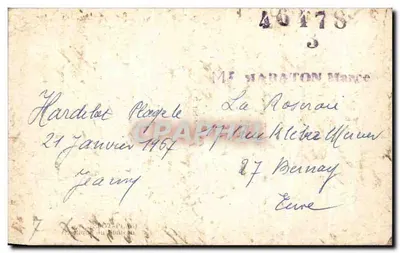 46478
3
Mr MARATON Marce
Hardelot Plage le
21 Janvier 1967
Jeanny
La Roseraie
27 Bernay
Eure
7
CPARAMA